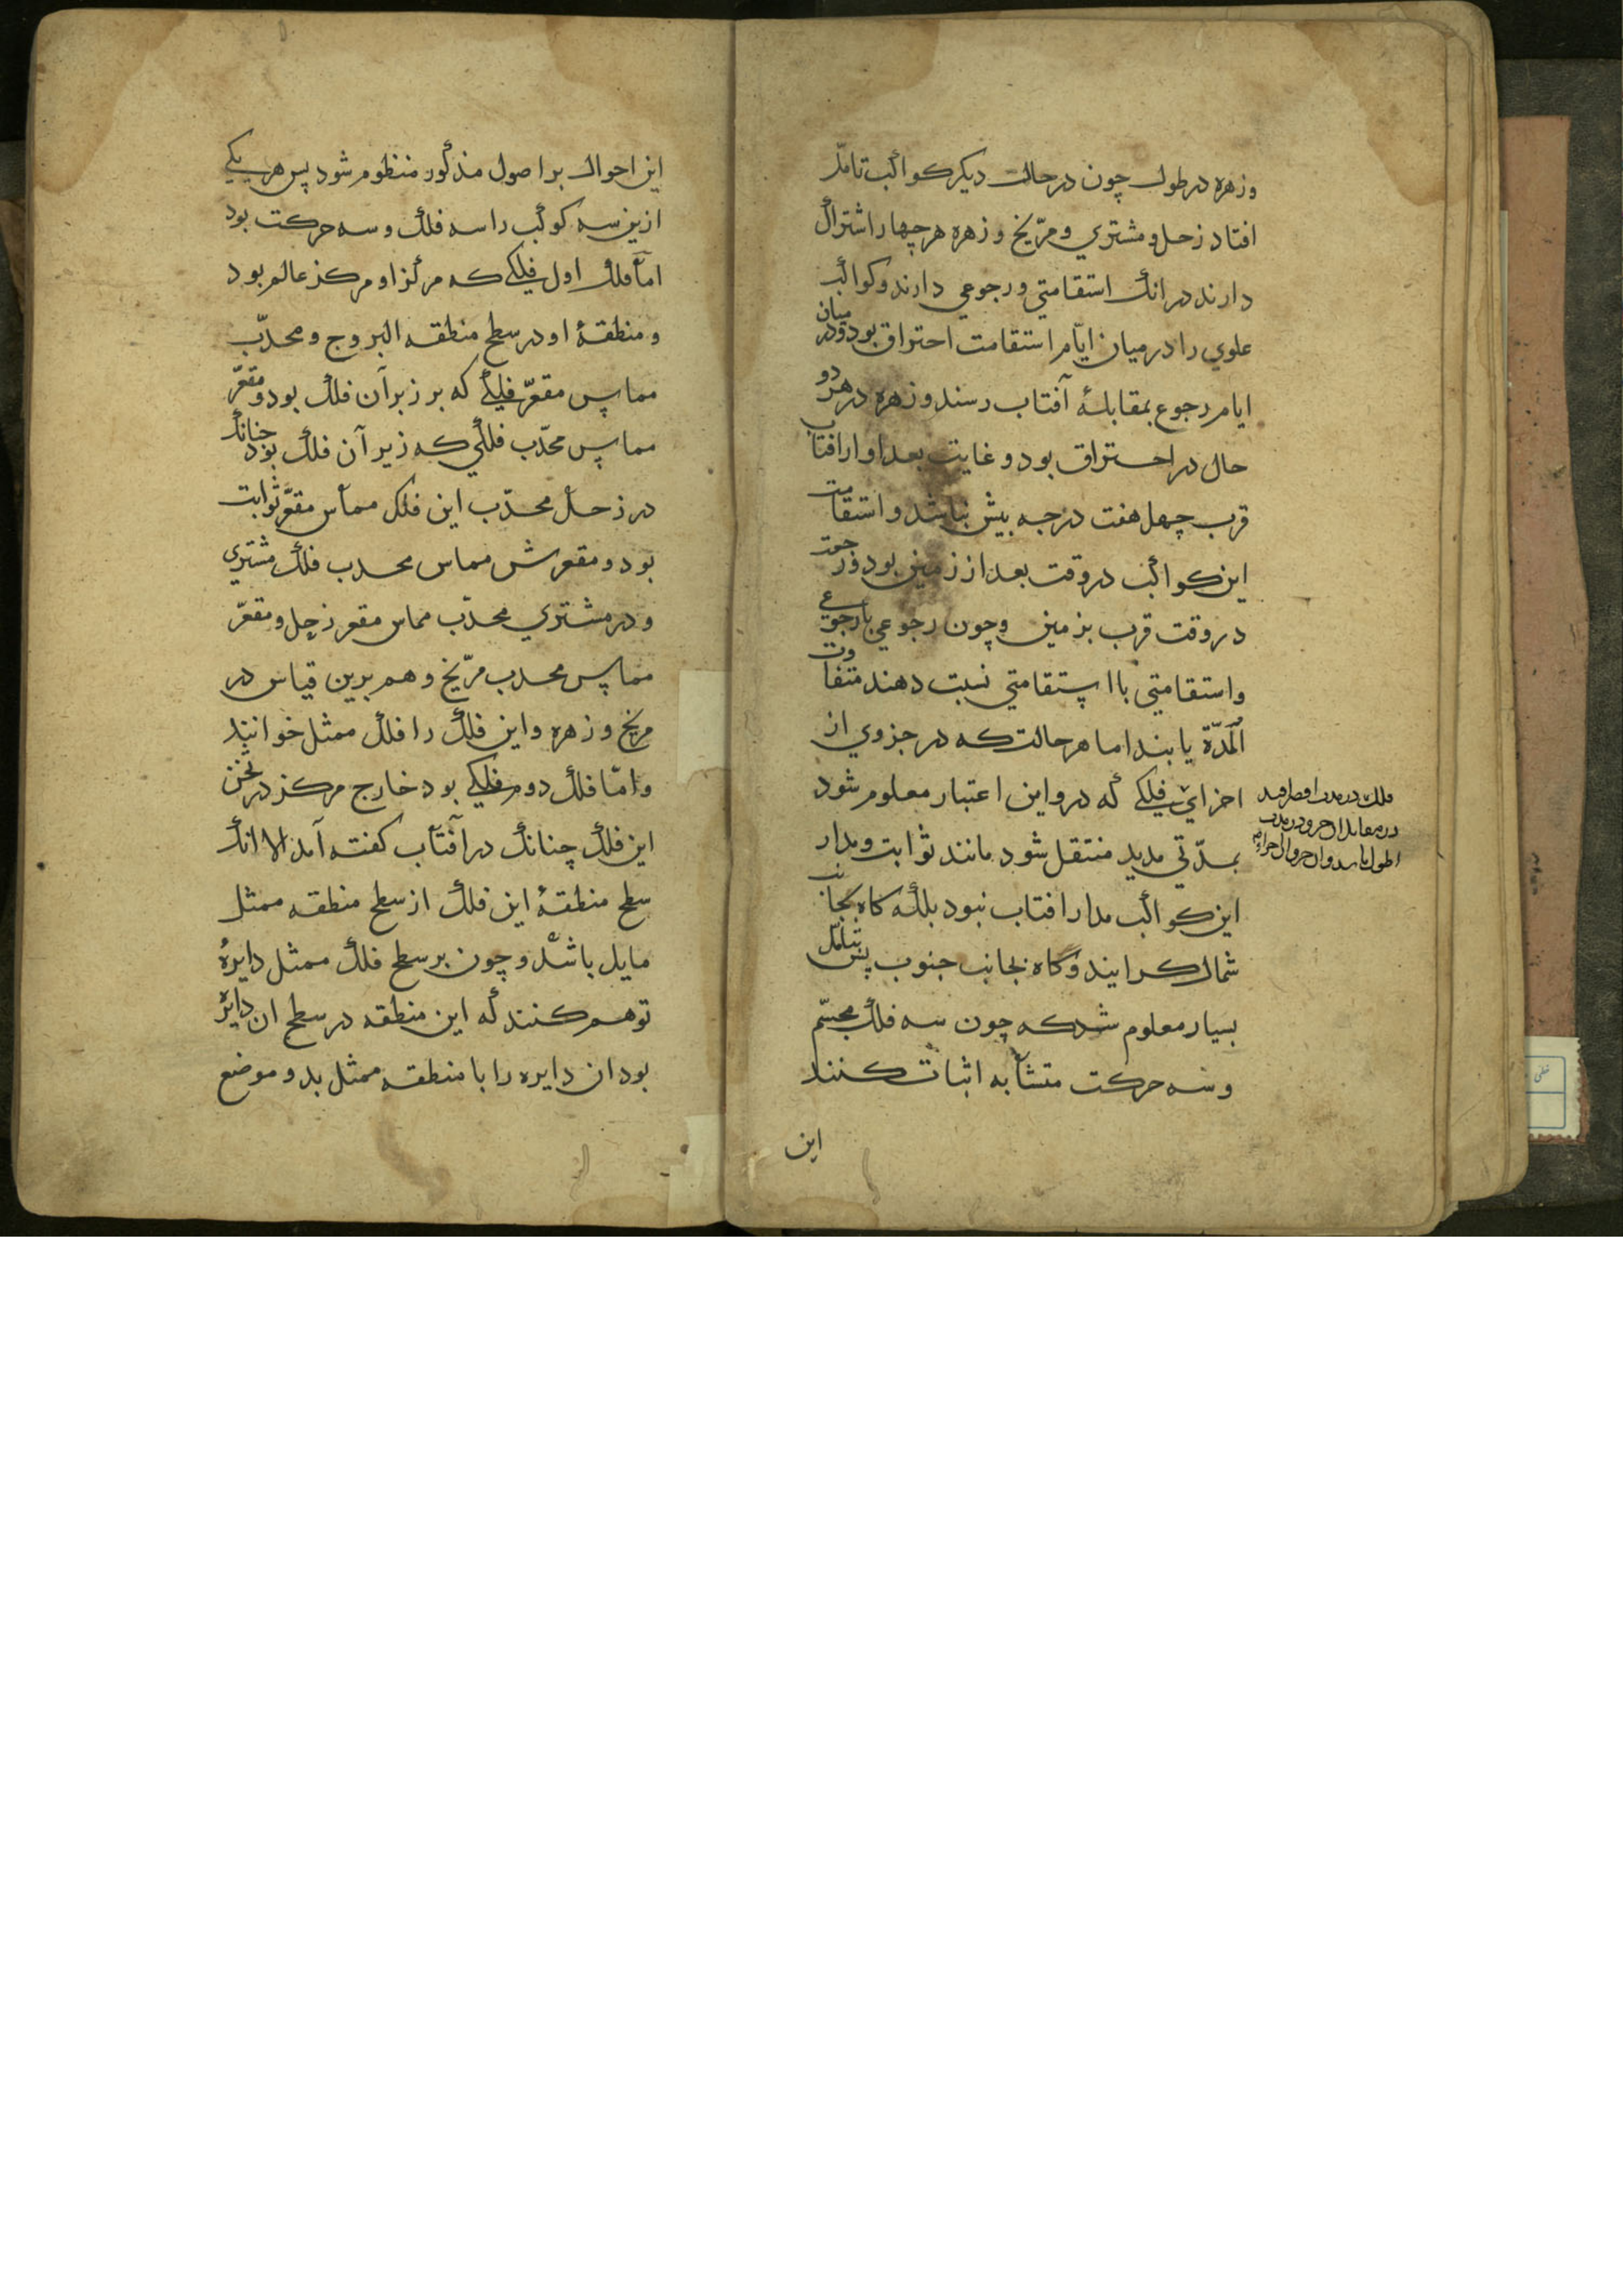 وزهره در طول چون در حالت دیکر کواکب تامل
افتاد زحل و مشتري و مرّیخ و زهره هر چهار اشتراک
دارند در انک استقامتي و رجوعي دارند و کواکب
علوي را در میان ایّام استقامت احتراق بود و در میان
ایام رجوع بمقابلهٔ آفتاب رسند و زهره در هر دو
حال در احتراق بود و غایت بعد او از افتاب
قرب چهل هفت درجه بیش نباشد و استقامت
این کواکب در وقت بعد از زمین بود و رجعت
در وقت قرب بزمین وچون رجوعي با رجوعي
واستقامتي با استقامتي نسبت دهند متفاوت
المدّة یابند اما هر حالت که در جزوي از
اجزاي فلکي که در و این اعتبار معلوم شود
بمدّتي مدید منتقل شود مانند ثوابت و مدار
این کواکب مدار افتاب نبود بلکه کاه بجانب
شمال کرایند و کاه بجانب جنوب پس بتامّل
بسیار معلوم شد که چون سه فلک مجسّم
و سه حرکت متشابه اثبات کنند
این
این احوال بر اصول مذکور منظوم شود پس هر یکي
ازین سه کوکب را سه فلک و سه حرکت بود
امّا فلک اول فلکي که مرکز او مرکز عالم بود
و منطقهٔ او در سطح منطقه البروج و محدّب
مماس مقعّر فلکي که بر زبر آن فلک بود و مقعّر
مماس محدّب فلکي که زیر آن فلک بود چنانک
در زحل محدّب این فلک مماس مقعّر ثوابت
بود و مقعرش مماس محدب فلک مشتري
و در مشتري محدّب مماس مقعر زحل و مقعّر
مماس محدب مرّیخ و هم برین قیاس در
مریخ و زهره و این فلک را فلک ممثل خوانند
وامّا فلک دوم فلکي بود خارج مرکز در ثخن
این فلک چنانک در آفتاب کفته آمد الا انک
سطح منطقهٔ این فلک از سطح منطقه ممثل
مایل باشد و چون بر سطح فلک ممثل دایرهٔ
توهم کنند که این منطقه در سطح ان دایره
بود ان دایره را با منطقه ممثل بدو موضع